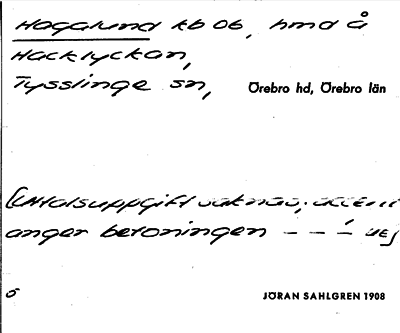 Hagalund kb 06, hmd å
Hacklyckan,
Tysslinge sn, Örebro hd, Örebro län
(Uttalsuppgift saknas; accent
anger betoningen – – –́
6 JÖRAN SAHLGREN 1908